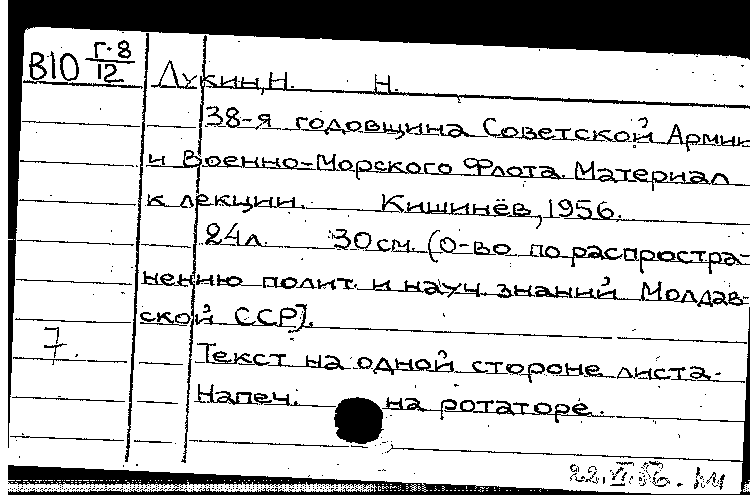 В10 Г-8/12
Лукин, Н. Н.
38-я годовщина Советской Армии
и Военно-Морского Флота. Материал
к лекции. Кишинёв, 1956.
24л. 30см. (О-во по распростра-
нению полит. и науч. знаний Молдав-
ской ССР).
7.
Текст на одной стороне листа.
Напеч. на ротаторе.
22.VI.56.